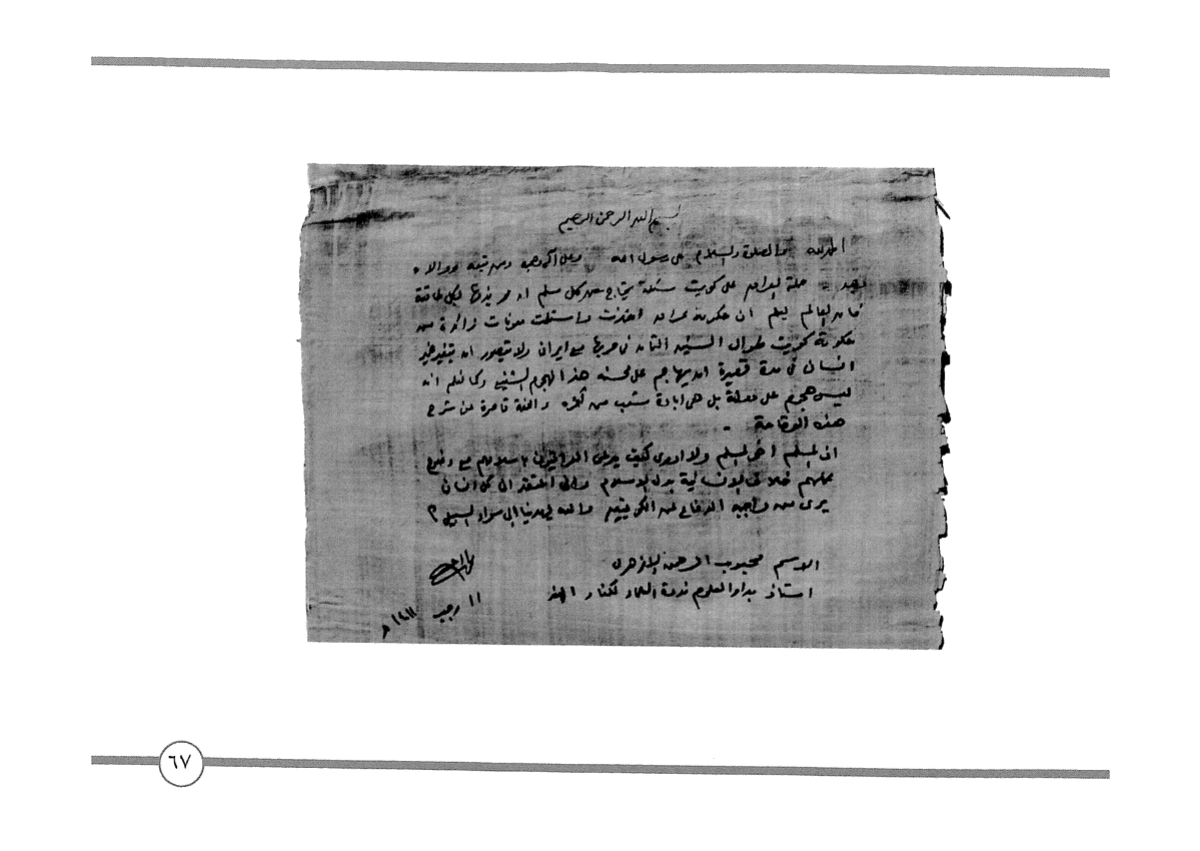 بسم الله الرحمن الرحيم
الحمد لله والصلوة والسلام على رسول الله وعلى آله وصحبه ومن تبعه ووالاه
وبعد - حملة العراق على كويت مسئلة تحتاج من كل مسلم ان لكل طاقة
العالم يعلم ان حكومة عراق اخذت واستلمت معونات زائدة من
حكومة كويت طوال السنين الثمان في حربها مع ايران ولا يتصور ان يتغير ضمير
انسان في مدة قصيرة ان يهاجم على محسنه هذا الهجوم الشنيع وكما نعلم انه
ليس هجوم على دولة بل هي ابادة شعب من قاصرة عن شرح
هذه الوقاحة -
ان المسلم اخ المسلم ولا ادري كيف يدعى العراقيون باسلامهم مع وضوح
عملهم خلاف الإنسانية بدل الإسلام واني اعتقد ان كل انسان
يرى من واجبه الدفاع عن الكويتيين والله يهدينا الى سواء السبيل ؟
الاسم محبوب الرحمن الازهري
استاذ بدار العلوم ندوة العلماء لكناو الهند
١١ رجب ١٤١١ هـ
٦٧